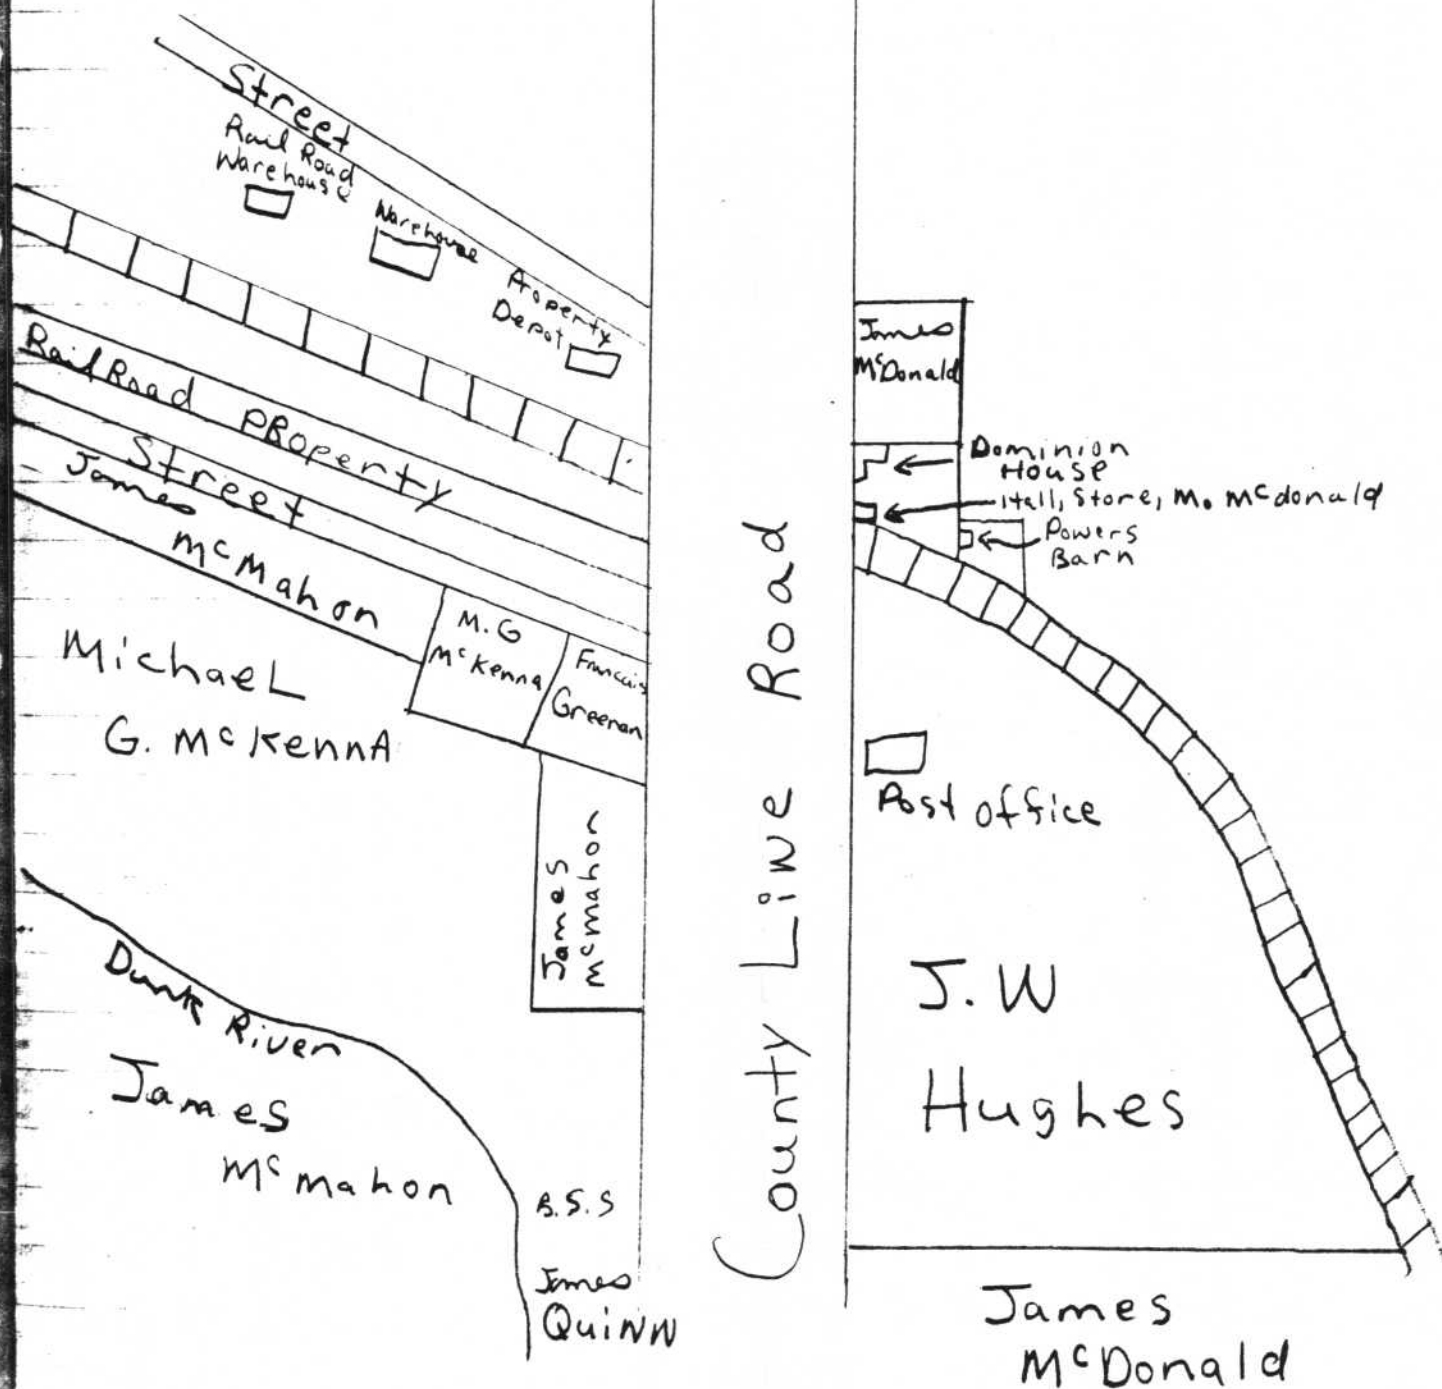 Street
Rail Road
Warehouse
Warehouse
Property
Depot
RailRoad PRoperty
Street
James
McMahon
M.G
McKenna
Francis
Greenan
Michael
G. McKennA
James
McMahon
Dunk River
James
McMahon
B.S.S
James
QuiNN
County Line Road
James
McDonald
Dominion
House
Hall, Store, M. Mcdonald
Powers
Barn
Post office
J.W
Hughes
James
McDonald